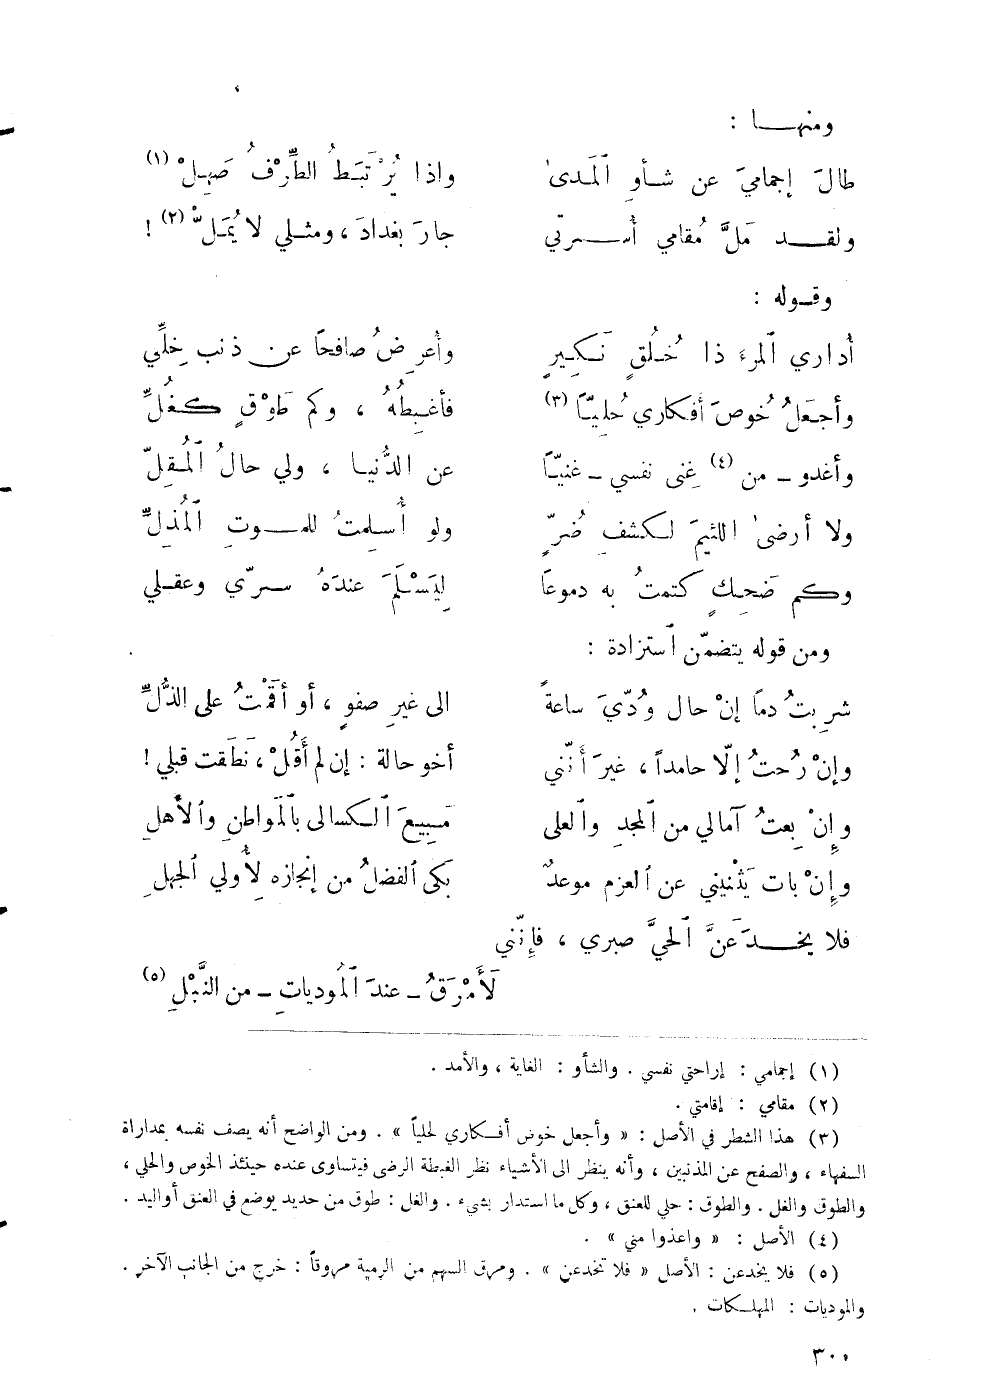 ومنهـا :
طالَ إجماميَ عن شأوِ ٱلمَدىٰ    واذا يُرْتَبَطُ الطِّرْفُ صَهِلْ (١)
ولقـد مَلَّ مُقامي أُسـرتي    جارَ بغدادَ ، ومثلي لا يُمَلّْ (٢) !
وقوله :
أُداري ٱلمرءَ ذا خُلُقٍ نَكيرٍ    وأُعرِضُ صافحًا عن ذنب خِلِّي
وأجعَلُ خُوصَ أفكاري حُلِيّاً (٣)    فأغبِطُهُ ، وكم طَوْقٍ كغُلِّ
وأغدو ـ من (٤) غِنى نفسي ـ غنيّاً    عن الدُّنيا ، ولي حالُ ٱلمُقِلّ
ولا أرضىٰ اللئيمَ لكشفِ ضُرّ    ولو أُسلِمتُ للمـوتِ ٱلمُذِلِّ
وكم ضَحِكٍ كتمتُ به دموعاً    لِيَسْلَمَ عندَهُ سـرّي وعقلي
ومن قوله يتضمّن ٱستزادة :
شرِبتُ دماً إنْ حال وُدّيَ ساعةً    الى غيرِ صفوٍ ، أو أقَمْتُ على الذُّلِّ
وإنْ رُحتُ إلّا حامداً ، غيرَ أنّني    أخو حالة : إن لم أَقُلْ ، نَطَقت قبلي !
وإنْ بِعتُ آمالي من ٱلمجدِ وٱلعلى    مَبِيعَ ٱلكسالى بٱلمَواطنِ وٱلأهلِ
وإنْ بات يَثْنيني عن ٱلعزم موعدٌ    بكى ٱلفضلُ من إنجازه لِأُولي ٱلجهلِ
فلا يخـدَعَنَّ ٱلحيَّ صبري ، فإنّني
لَأَمْرَقُ ـ عندَ ٱلمُودياتِ ـ من النَّبْلِ (٥)
(١) إجمامي : إراحتي نفسي . والشأو : الغاية ، والأمد .
(٢) مقامي : إقامتي .
(٣) هذا الشطر في الأصل : « وأجعل خوض أفكاري لحلياً » . ومن الواضح أنه يصف نفسه بمداراة
السفهاء ، والصفح عن المذنبين ، وأنه ينظر الى الأشياء نظر الغبطة الرضى فيتساوى عنده حينئذ الخوص والحلي ،
والطوق والغل . والطوق : حلي للعنق ، وكل ما استدار بشيء . والغل : طوق من حديد يوضع في العنق أو اليد .
(٤) الأصل : « واعذوا مني » .
(٥) فلا يخدعن : الأصل « فلا تخدعن » . ومرق السهم من الرمية مروقاً : خرج من الجانب الآخر .
والموديات : المهلكات .
٣٠٠